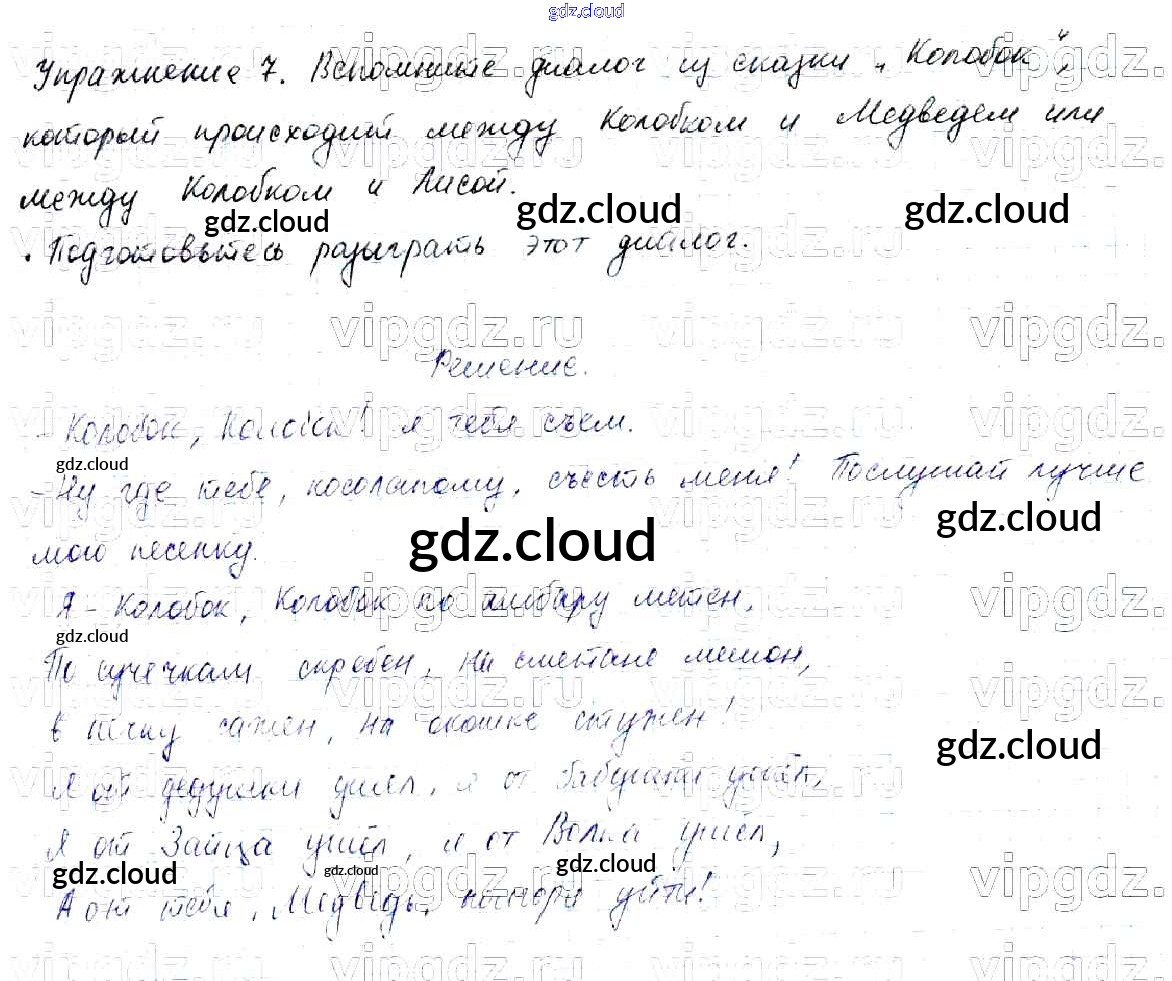 gdz.cloud
Упражнение 7. Вспомните диалог из сказки „Колобок",
который происходит между Колобком и Медведем или
между Колобком и Лисой.
gdz.cloud gdz.cloud gdz.cloud
• Подготовьтесь разыграть этот диалог.
vipgdz.ru vipgdz.ru vipgdz.ru vipgdz.
Решение.
- Колобок, Колобок! я тебя съем.
gdz.cloud
- Ну где тебе, косолапому, съесть меня! Послушай лучше
gdz.cloud
мою песенку.
gdz.cloud
Я - Колобок, Колобок по амбару метен,
gdz.cloud
По сусечкам скребен, на сметане мешон,
В печку сажен, на окошке стужен!
gdz.cloud
Я от дедушки ушёл, я от бабушки ушёл,
Я от Зайца ушёл, я от Волка ушёл,
gdz.cloud gdz.cloud gdz.cloud
А от тебя, Медведь, нехитро уйти!